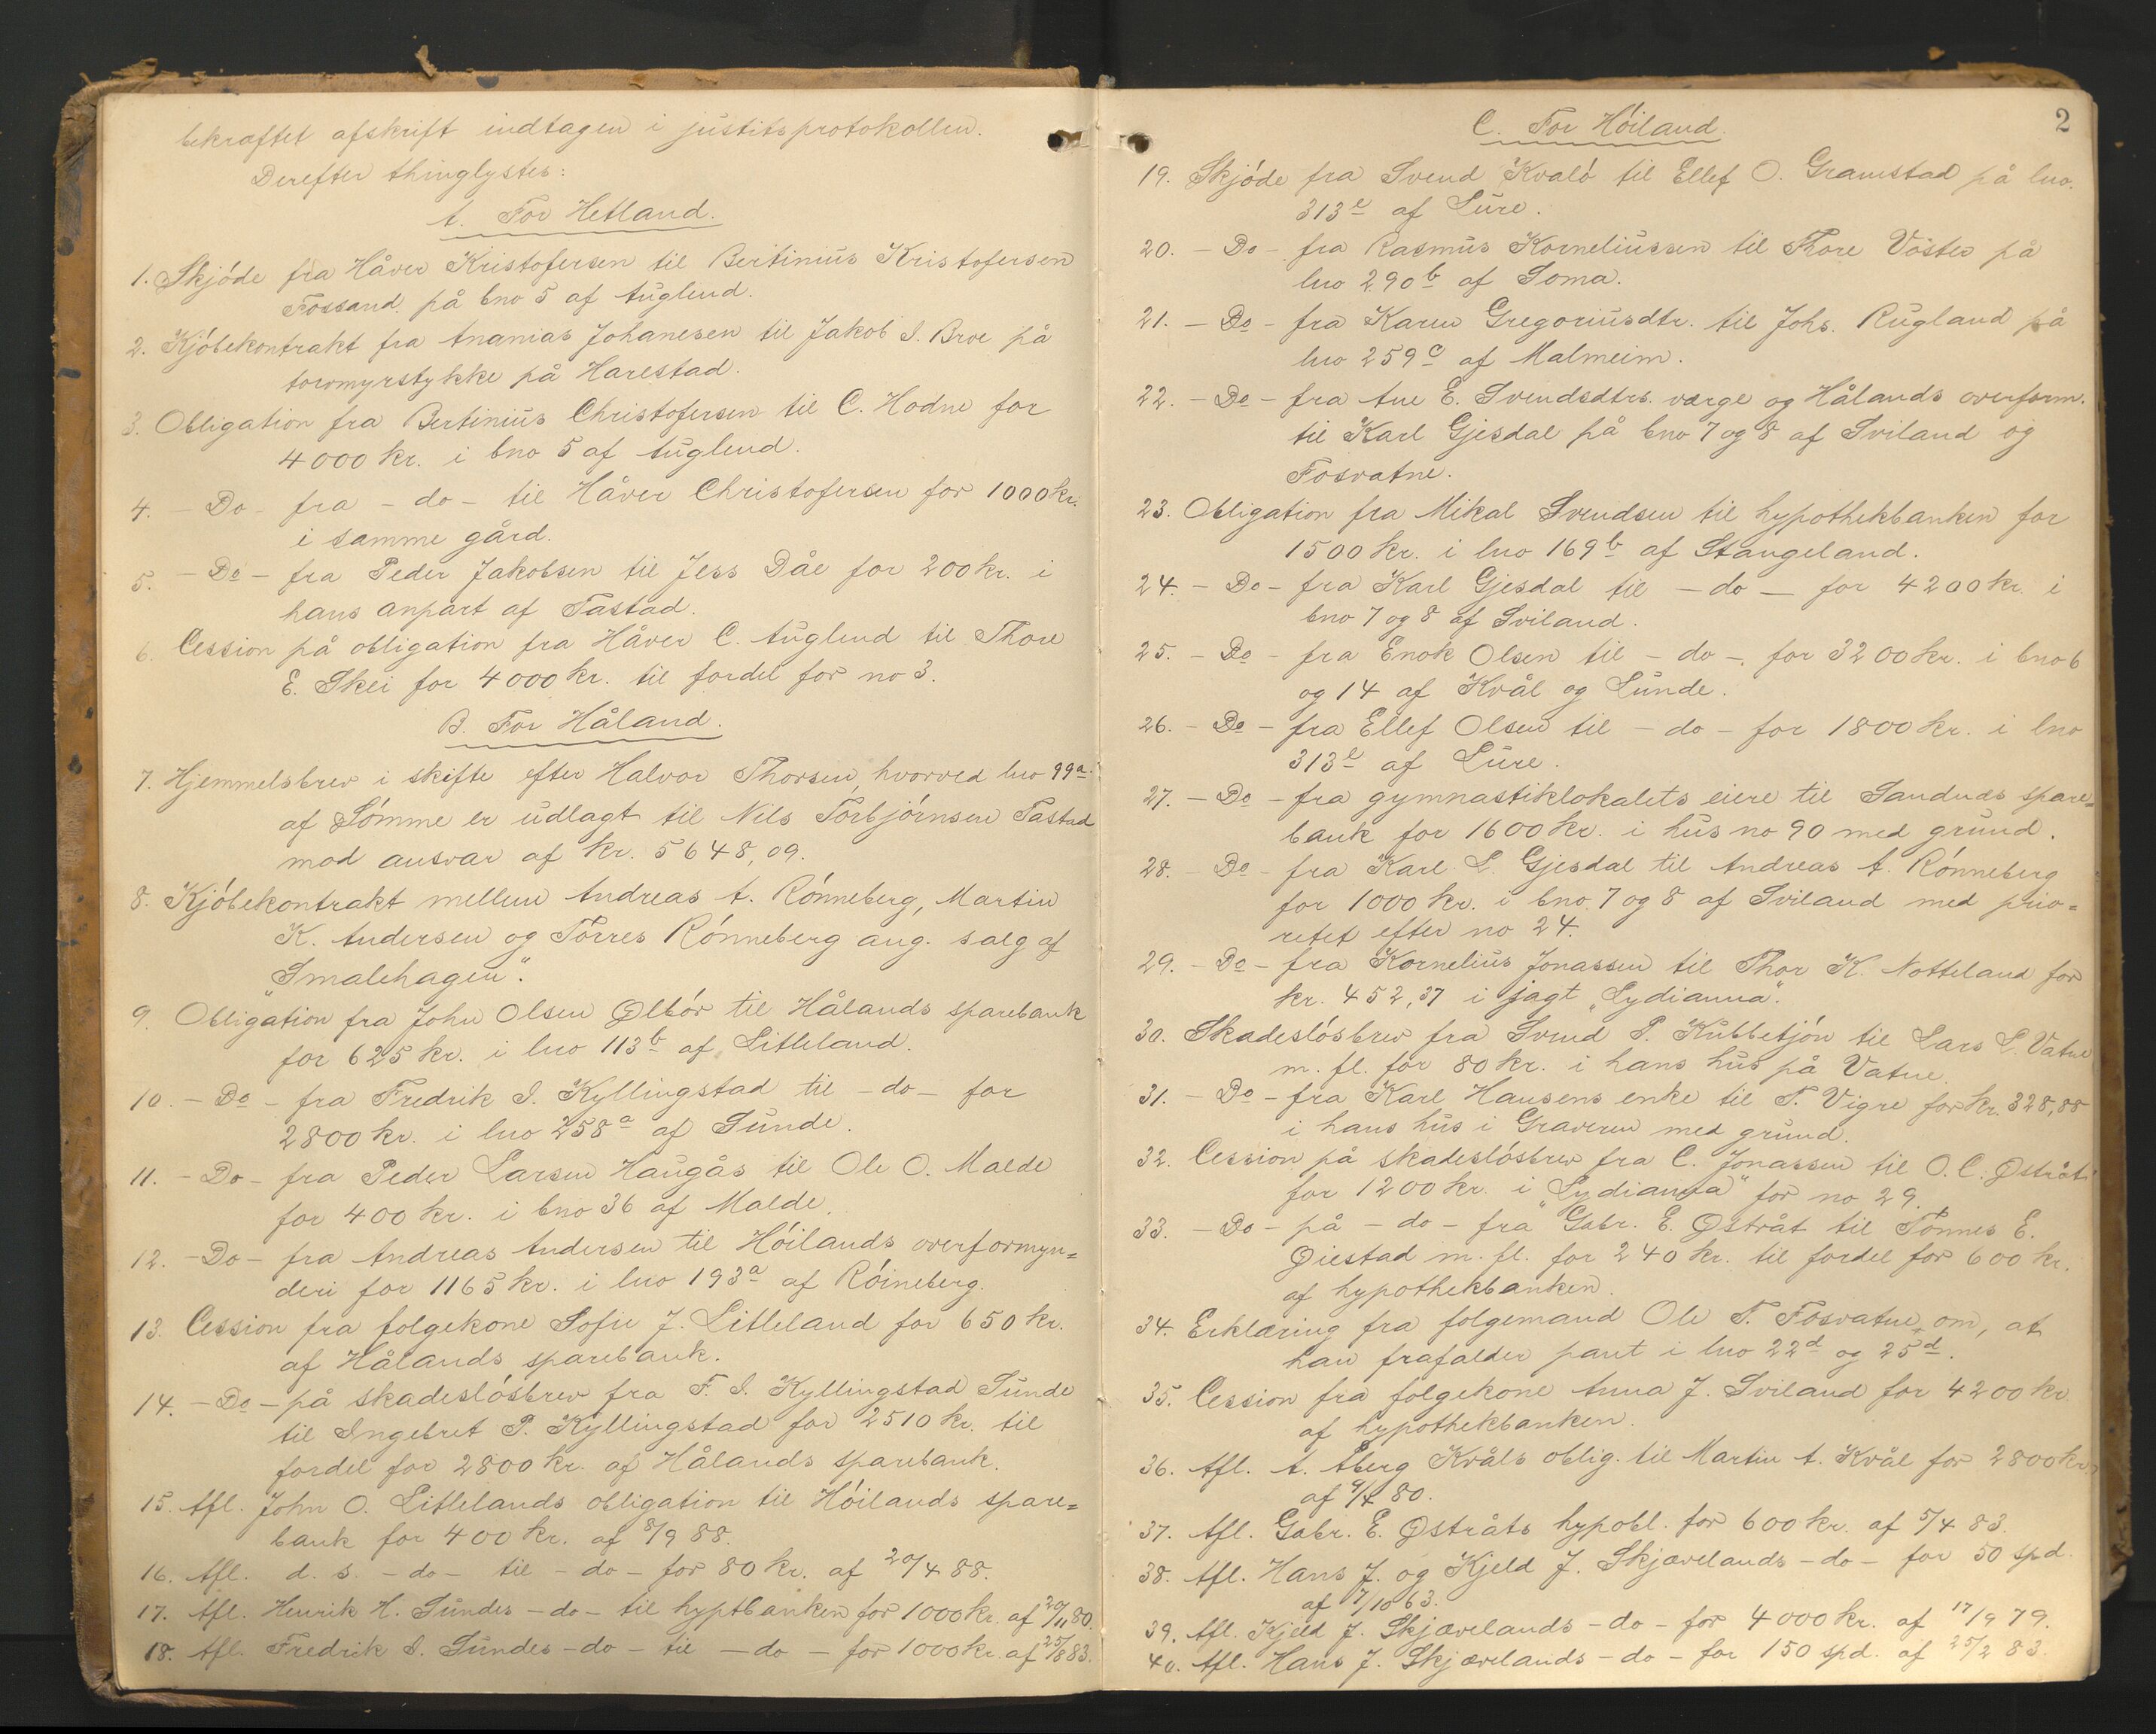 bekræftet afskrift indtagen i justitsprotokollen.
Derefter thinglystes:
A. For Hetland.
1. Skjöde fra Håver Kristofersen til Bertinius Kristofersen
Fossand på bno 5 af Auglend.
2. Kjöbekontrakt fra Ananias Johanesen til Jakob I. Broe på
torvmyrstykke på Harestad.
3. Obligation fra Bertinius Christofersen til C. Hodne for
4000 kr. i bno 5 af Auglend.
4. - Do - fra - do - til Håver Christofersen for 1000 kr.
i samme gård.
5. - Do - fra Peder Jakobsen til Jess Dåe for 200 kr. i
hans anpart af Tastad.
6. Cession på obligation fra Håver C. Auglend til Thore
E. Skei for 4000 kr. til fordel for no 3.
B. For Håland.
7. Hjemmelsbrev i skifte efter Halvor Thorsen, hvorved lno 99a
af Sömme er udlagt til Nils Torbjörnsen Tastad
mod ansvar af kr. 5648,09.
8. Kjöbekontrakt mellem Andreas A. Rönneberg, Martin
K. Andersen og Törres Rönneberg ang. salg af
„Smalehagen“.
9. Obligation fra John Olsen Ølbör til Hålands sparebank
for 625 kr. i lno 113b af Litleland.
10. - Do - fra Fredrik I. Kyllingstad til - do - for
2800 kr. i lno 258a af Sunde.
11. - Do - fra Peder Larsen Haugås til Ole O. Malde
for 400 kr. i bno 36 af Malde.
12. - Do - fra Andreas Andersen til Höilands overformyn=
deri for 1165 kr. i lno 193a af Röineberg.
13. Cession fra folgekone Sofie J. Litleland for 650 kr.
af Hålands sparebank.
14. - Do - på skadeslösbrev fra F. I. Kyllingstad Sunde
til Ingebret P. Kyllingstad for 2510 kr. til
fordel for 2800 kr. af Hålands sparebank.
15. Afl. John O. Litlelands obligation til Höilands spare=
bank for 400 kr. af 8/9 88.
16. Afl. d. s. - do - til - do - for 80 kr. af 20/4 88.
17. Afl. Henrik H. Sundes - do - til hyptbanken for 1000 kr. af 20/11 80.
18. Afl. Fredrik I. Sundes - do - til - do - for 1000 kr. af 25/8 83.
2
C. For Höiland.
19. Skjöde fra Svend Kvalö til Ellef O. Gramstad på lno.
313e af Lure.
20. - Do - fra Rasmus Korneliussen til Thore Vöster på
lno 290b af Soma.
21. - Do - fra Karen Gregoriusdtr. til Johs. Rugland på
lno 259c af Malmeim.
22. - Do - fra Ane E. Svendsdtrs. værge og Hålands overform.
til Karl Gjesdal på bno 7 og 8 af Sviland og
Fosvatne.
23. Obligation fra Mikal Svendsen til hypothekbanken for
1500 kr. i lno 169b af Stangeland.
24. - Do - fra Karl Gjesdal til - do - for 4200 kr. i
bno 7 og 8 af Sviland.
25. - Do - fra Enok Olsen til - do - for 3200 kr. i bno 6
og 14 af Kvål og Lunde.
26. - Do - fra Ellef Olsen til - do - for 1800 kr. i lno
313e af Lure.
27. - Do - fra gymnastiklokalets eiere til Sandnes spare=
bank for 1600 kr. i hus no 90 med grund.
28. - Do - fra Karl L. Gjesdal til Andreas A. Rönneberg
for 1000 kr. i bno 7 og 8 af Sviland med prio=
ritet efter no 24.
29. - Do - fra Kornelius Jonassen til Thor K. Notteland for
kr. 452,37 i jagt „Lydianna“.
30. Skadeslösbrev fra Svend P. Kubbetjön til Lars L. Vatne
m. fl. for 80 kr. i hans hus på Vatne.
31. - Do - fra Karl Hansens enke til T. Vigre for kr. 328,88
i hans hus i Graveren med grund.
32. Cession på skadeslösbrev fra C. Jonassen til O. C. Østråt
for 1200 kr. i „Lydianna“ for no 29.
33. - Do - på - do - fra Gabr. E. Østråt til Tönnes E.
Øiestad m. fl. for 240 kr. til fordel for 600 kr.
af hypothekbanken.
34. Erklæring fra folgemand Ole T. Fosvatne om, at
han frafalder pant i lno 22d og 25d.
35. Cession fra folgekone Anna J. Sviland for 4200 kr.
af hypothekbanken.
36. Afl. A. Aberg Kvåls oblig. til Martin A. Kvål for 2800 kr.
af 9/4 80.
37. Afl. Gabr. E. Østråts hypobl. for 600 kr. af 5/4 83.
38. Afl. Hans J. og Kjeld J. Skjævelands - do - for 50 spd.
af 17/10 63.
39. Afl. Kjeld J. Skjævelands - do - for 4000 kr. af 17/9 79.
40. Afl. Hans J. Skjævelands - do - for 150 spd. af 25/2 83.